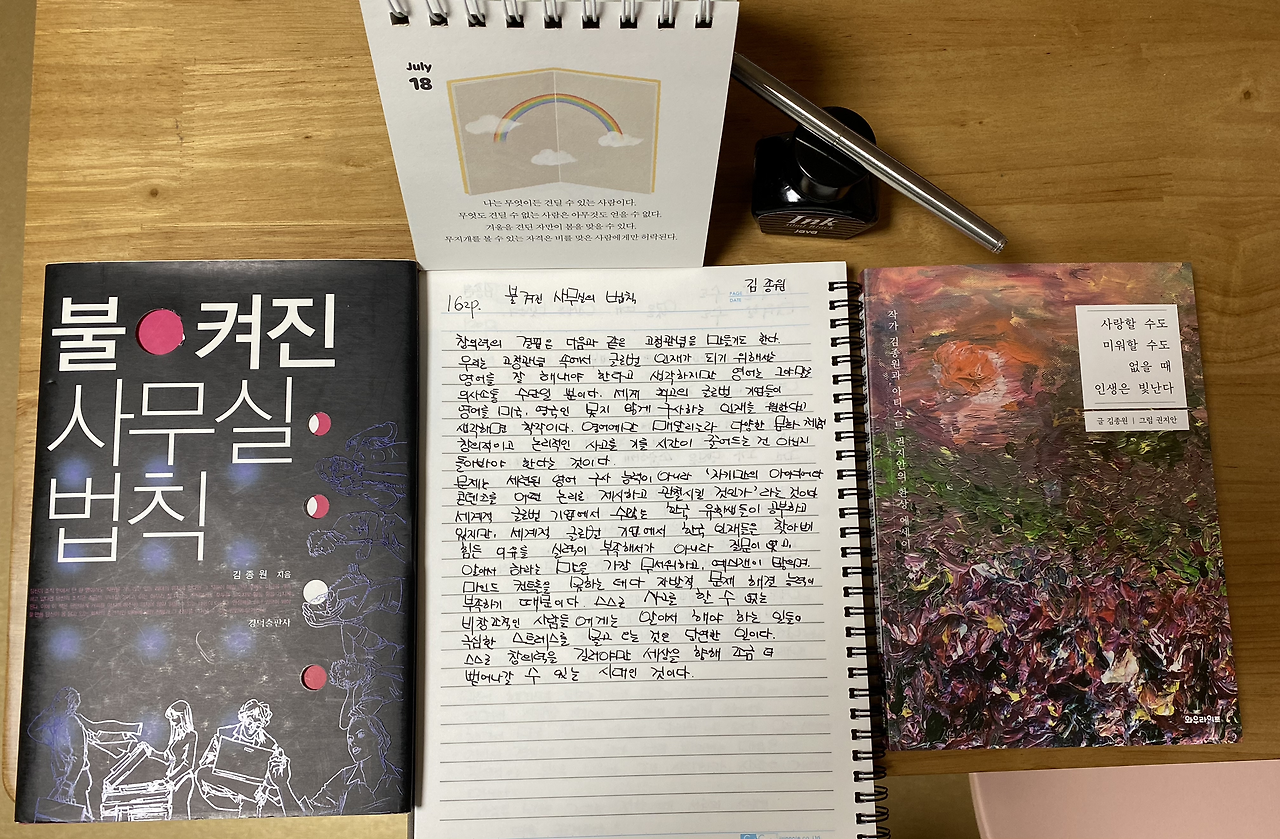 July
18
나는 무엇이든 견딜 수 있는 사람이다.
무엇도 견딜 수 없는 사람은 아무것도 얻을 수 없다.
겨울을 견딘 자만이 봄을 맞을 수 있다.
무지개를 볼 수 있는 자격은 비를 맞은 사람에게만 허락된다.
Ink
JAVA
불 켜진
사무실
법칙
김종원 지음
경덕출판사
162p. 불켜진 사무실의 법칙 김종원
PAGE
DATE
창의력의 결핍은 다음과 같은 고정관념을 만들기도 한다.
우리는 고정관념 속에서 글로벌 인재가 되기 위해선
영어를 잘 해내야 한다고 생각하지만 영어는 그야말로
의사소통 수단일 뿐이다. 세계 최고의 글로벌 기업들이
영어를 미국, 영국인 못지 않게 구사하는 인재를 원한다고
생각하면 착각이다. 영어에만 매달리느라 다양한 문화 체험
창의적이고 논리적인 사고를 기를 시간이 줄어드는 건 아닌지
돌아봐야 한다는 것이다.
문제는 세련된 영어 구사 능력이 아니라 '자기만의 아이디어와
콘텐츠를 어떤 논리로 제시하고 관철시킬 것인가' 라는 것이다
세계적 글로벌 기업에서 수많은 한국 유학생들이 공부하고
있지만, 세계적 글로벌 기업에서 한국 인재들을 찾아보기
힘든 이유를 실력이 부족해서가 아니라 질문이 없고,
앞에서 하라는 말을 가장 무서워하고, 예스맨이 많으며,
마인드 컨트롤을 못하는 데다 자발적 문제 해결 능력이
부족하기 때문이다. 스스로 사고를 한 수 없는
비창조적인 사람들에게는 앞에서 해야 하는 일들이
극심한 스트레스를 몰고 오는 것은 당연한 일이다.
스스로 창의력을 길러야만 세상을 향해 조금 더
뻗어나갈 수 있는 시대인 것이다.
작가 김종원과 아티스트 권지안의 환상 에세이
사랑할 수도
미워할 수도
없을 때
인생은 빛난다
글 김종원 | 그림 권지안
와우라이프